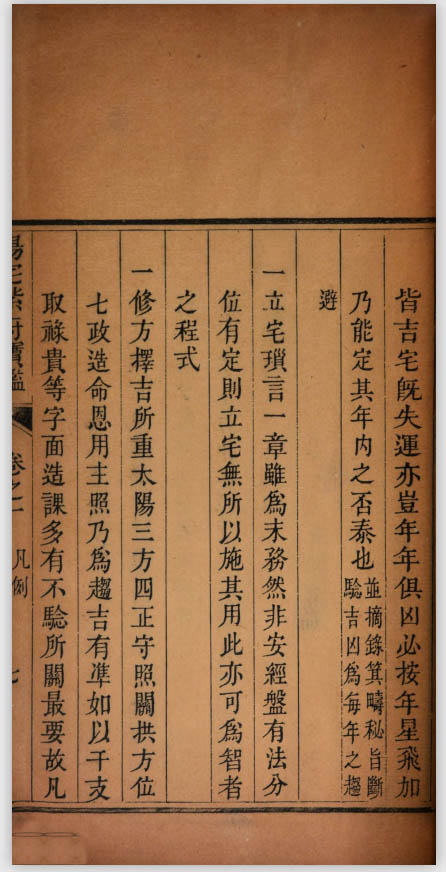 皆吉宅旣失運亦豈年年俱凶必按年星飛加
乃能定其年内之否泰也
並摘錄箕疇秘旨斷
驗吉凶爲每年之趨
避
一立宅瑣言一章雖爲末務然非安經盤有法分
位有定則立宅無所以施其用此亦可爲智者
之程式
一修方擇吉所重太陽三方四正守照關拱方位
七政造命恩用主照乃爲趨吉有準如以干支
取祿貴等字面造課多有不驗所關最要故凡
陽宅紫府寶鑑
卷之一 凡例
七